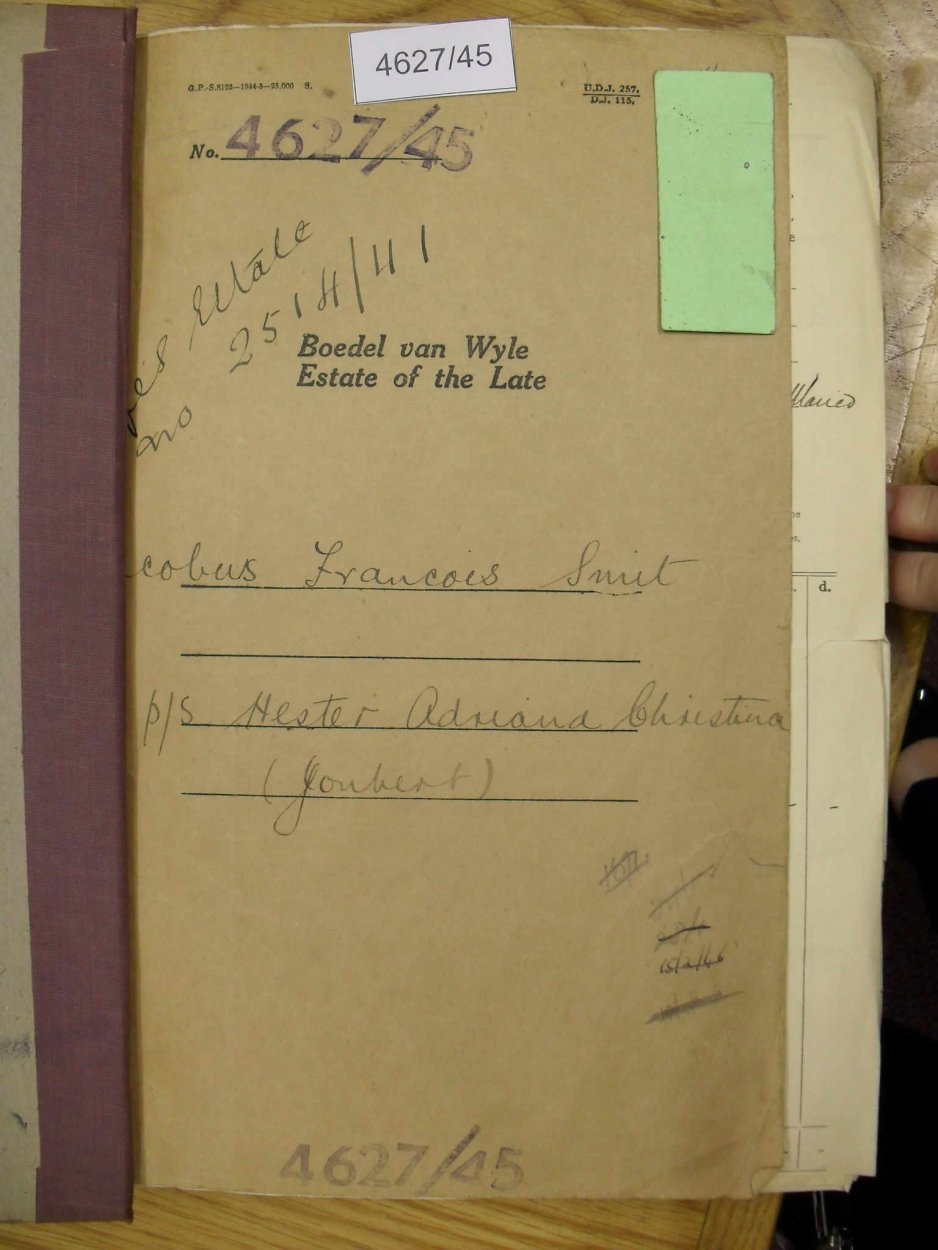 4627/45
G.P.-S.8122—1944-5—25,000 S.
U.D.J. 257.
D.J. 115.
No. 4627/45
Estate
no 2514/41
Boedel van Wyle
Estate of the Late
cobus Francois Smit
p/s Hester Adriana Christina
(Joubert)
d.
4627/45